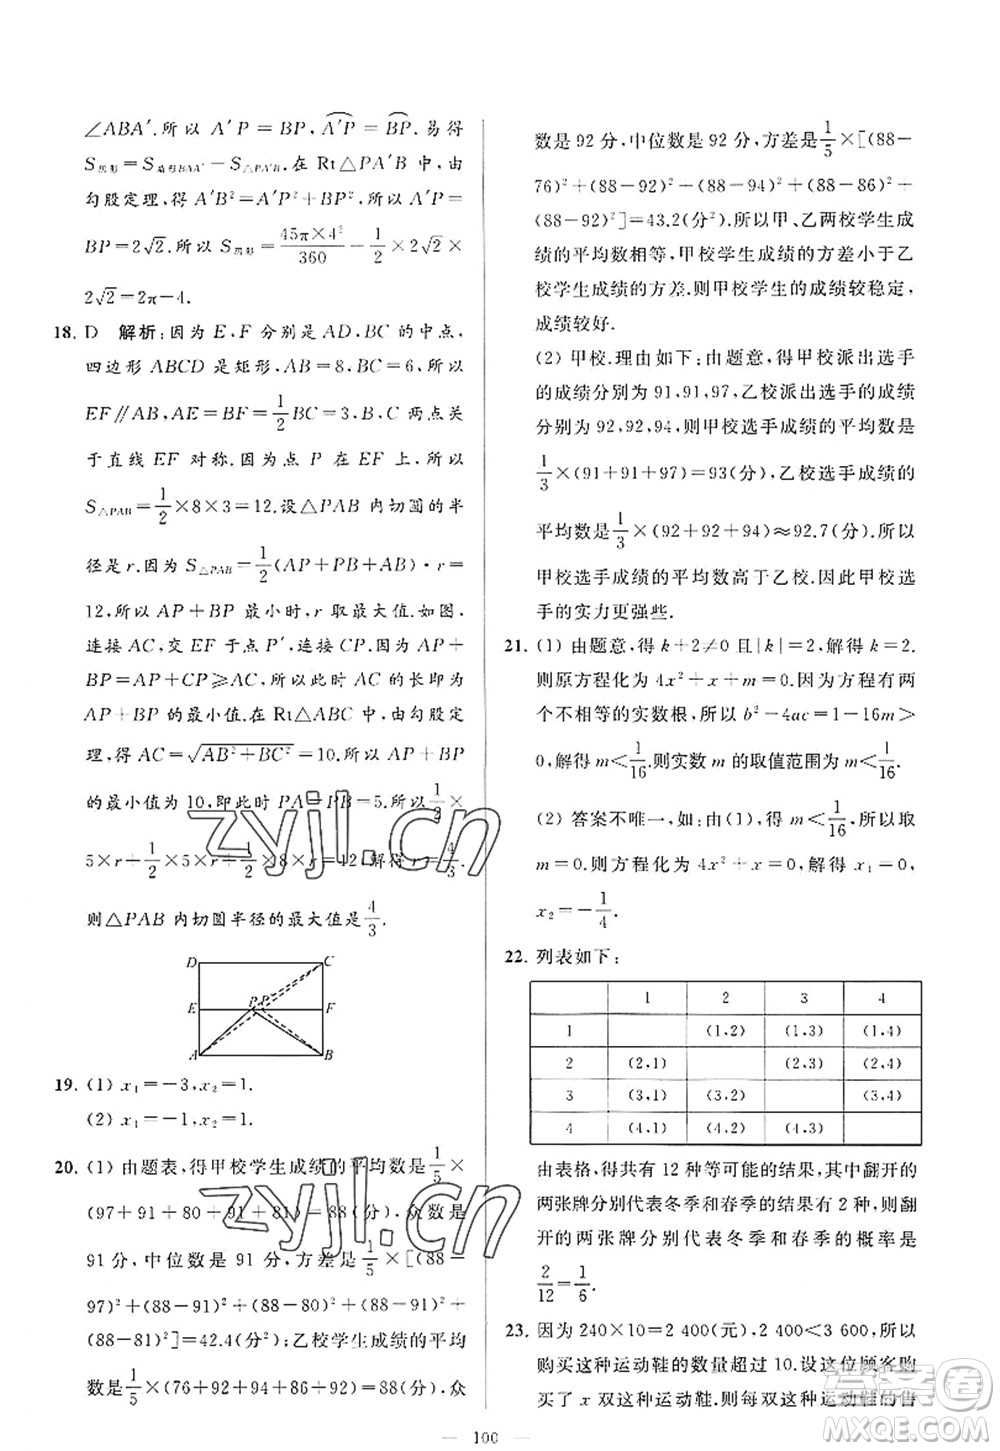 ∠ABA′.所以 A′P=BP,A′P=BP.易得
S阴影=S扇形BAA′−S△PA′B.在 Rt△PA′B 中,由
勾股定理,得 A′B²=A′P²+BP²,所以 A′P=
BP=2√2.所以 S阴影=45π×4²/360−1/2×2√2×
2√2=2π−4.
18. D 解析:因为 E,F 分别是 AD,BC 的中点,
四边形 ABCD 是矩形,AB=8,BC=6,所以
EF∥AB,AE=BF=1/2BC=3,B,C 两点关
于直线 EF 对称.因为点 P 在 EF 上,所以
S△PAB=1/2×8×3=12.设△PAB 内切圆的半
径是 r.因为 S△PAB=1/2(PA+PB+AB)·r=
12,所以 AP+BP 最小时,r 取最大值.如图,
连接 AC,交 EF 于点 P′,连接 CP.因为 AP+
BP=AP+CP⩾AC,所以此时 AC 的长即为
AP+BP 的最小值.在 Rt△ABC 中,由勾股定
理,得 AC=√(AB²+BC²)=10.所以 AP+BP
的最小值为 10,即此时 PA=PB=5.所以1/2×
5×r+1/2×5×r+1/2×8×r=12,解得 r=4/3.
则△PAB 内切圆半径的最大值是4/3.
D C
E P P′ F
A B
19. (1) x₁=−3,x₂=1.
(2) x₁=−1,x₂=1.
20. (1) 由题表,得甲校学生成绩的平均数是1/5×
(97+91+80+91+81)=88(分),众数是
91 分,中位数是 91 分,方差是1/5×[(88−
97)²+(88−91)²+(88−80)²+(88−91)²+
(88−81)²]=42.4(分²);乙校学生成绩的平均
数是1/5×(76+92+92+86+94)=88(分),众
数是 92 分,中位数是 92 分,方差是1/5×[(88−
76)²+(88−92)²+(88−92)²+(88−86)²+
(88−94)²]=43.2(分²).所以甲、乙两校学生成
绩的平均数相等,甲校学生成绩的方差小于乙
校学生成绩的方差.则甲校学生的成绩较稳定,
成绩较好.
(2) 甲校.理由如下:由题意,得甲校派出选手
的成绩分别为 91,91,97,乙校派出选手的成绩
分别为 92,92,94,则甲校选手成绩的平均数是
1/3×(91+91+97)=93(分),乙校选手成绩的
平均数是1/3×(92+92+94)≈92.7(分).所以
甲校选手成绩的平均数高于乙校.因此甲校选
手的实力更强些.
21. (1) 由题意,得 k+2≠0 且|k|=2,解得 k=2.
则原方程化为 4x²+x+m=0.因为方程有两
个不相等的实数根,所以 b²−4ac=1−16m>
0,解得 m<1/16.则实数 m 的取值范围为 m<1/16.
(2) 答案不唯一,如:由(1),得 m<1/16,所以取
m=0.则方程化为 4x²+x=0,解得 x₁=0,
x₂=−1/4.
22. 列表如下:
1 2 3 4
1 (1,2) (1,3) (1,4)
2 (2,1) (2,3) (2,4)
3 (3,1) (3,2) (3,4)
4 (4,1) (4,2) (4,3)
由表格,得共有 12 种等可能的结果,其中翻开的
两张牌分别代表冬季和春季的结果有 2 种,则翻
开的两张牌分别代表冬季和春季的概率是
2/12=1/6.
23. 因为 240×10=2 400(元),2 400<3 600,所以
购买这种运动鞋的数量超过 10.设这位顾客购
买了 x 双这种运动鞋,则每双这种运动鞋的售
— 100 —
zyjl.cn
zyjl.cn
答案圈
MXQE.COM